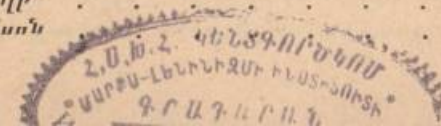 Հ.Ս.Խ.Հ. ԿԵՆՏԳՈՐԾԿՈՄ
ՄԱՐՔՍ-ԼԵՆԻՆԻԶՄԻ ԻՆՍՏԻՏՈՒՏԻ
ԳՐԱԴԱՐԱՆ